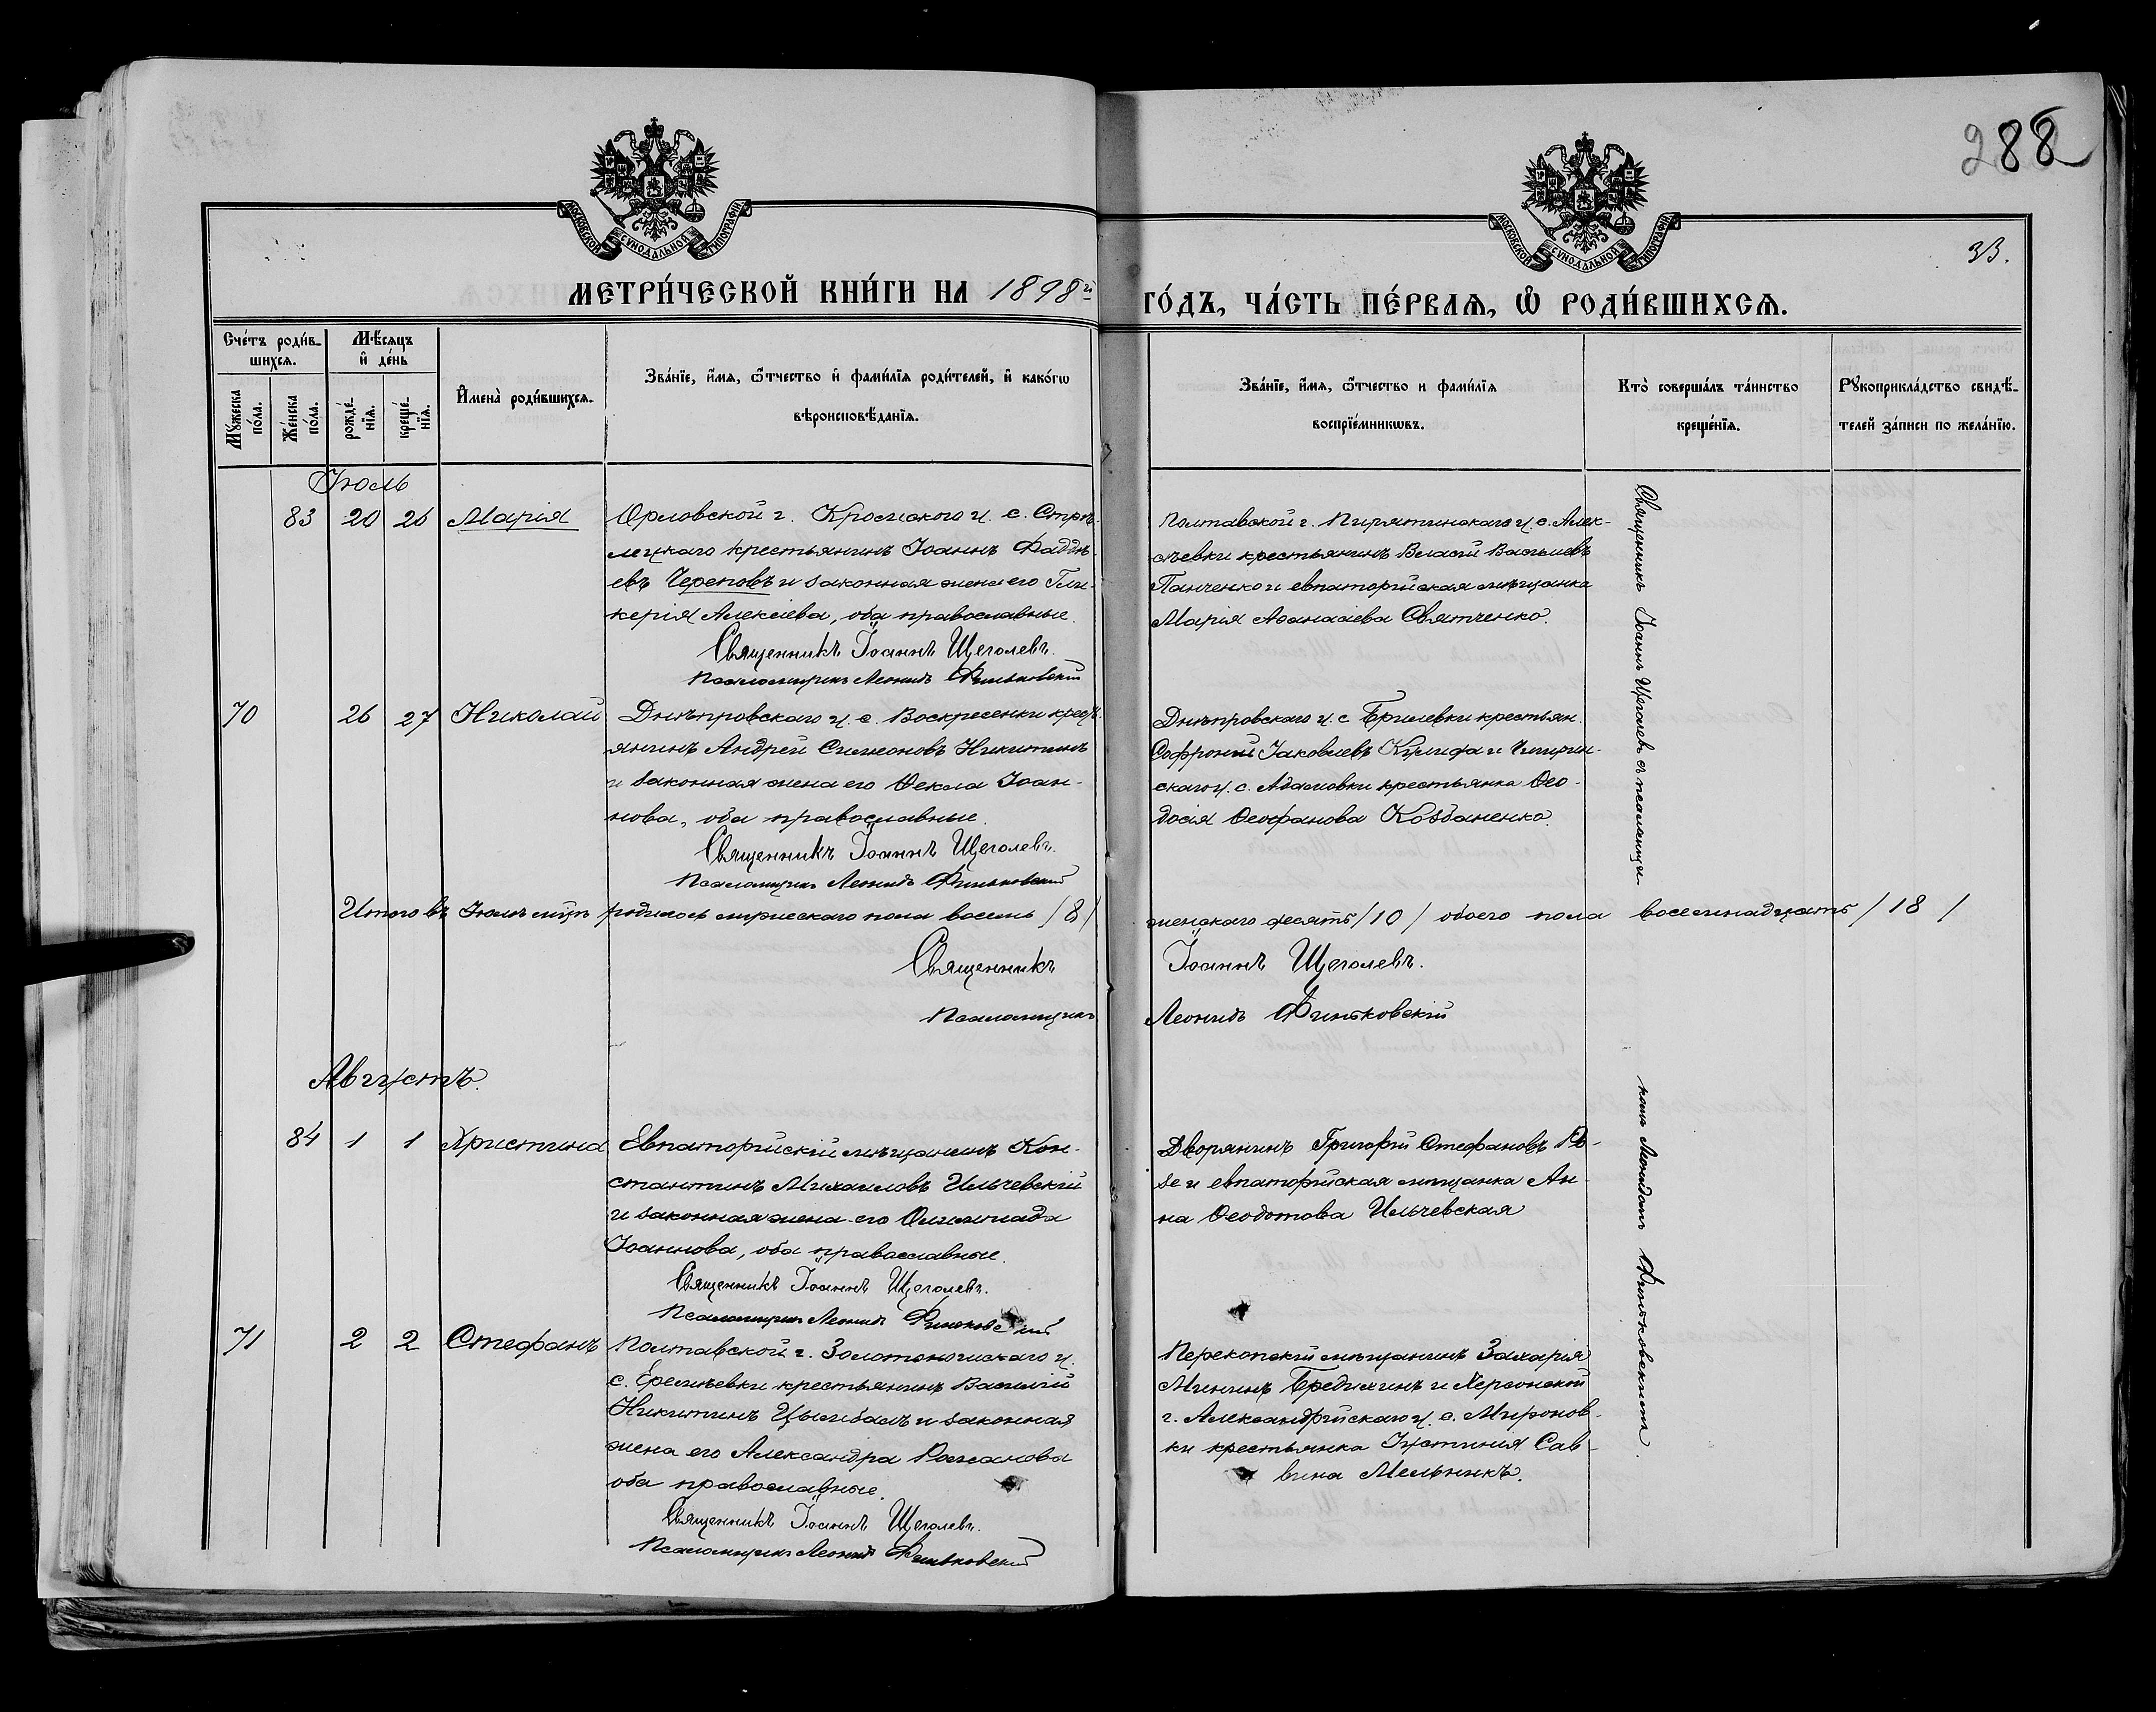 288
33.
МОСКОВСКОЙ СѴНОДАЛЬНОЙ ТИПОГРАФІИ
МОСКОВСКОЙ СѴНОДАЛЬНОЙ ТИПОГРАФІИ
МЕТРИ́ЧЕСКОЙ КНИ́ГИ НА 1898й ГО́ДЪ, ЧА́СТЬ ПЕ́РВАѦ, Ѡ҆ РОДИ́ВШИХСѦ.
Сче́тъ роди́в-
шихсѧ.
Мꙋ́жеска по́ла.
Же́нска по́ла.
Мѣ́сѧцъ
и҆ де́нь
рожде́-
нїѧ.
креще́-
нїѧ.
И҆мена̀ роди́вшихсѧ.
Зва́нїе, и҆́мѧ, ѻ҆́тчество и҆ фами́лїѧ роди́телей, и҆ како́гѡ
вѣроисповѣ́данїѧ.
Зва́нїе, и҆́мѧ, ѻ҆́тчество и фами́лїѧ
воспрїе́мникѡвъ.
Кто̀ соверша́лъ та́инство
креще́нїѧ.
Рꙋкоприкла́дство свидѣ́-
телей за́писи по жела́нїю.
Іюль
83 20 26 Марія
Орловской г. Кромского у. с. Стрѣ-
лецкаго крестьянинъ Іоаннъ Фаддѣ-
евъ Череповъ и законная жена его Гли-
керія Алексіева, оба православные.
Священникъ Іоаннъ Щеголевъ.
Псаломщикъ Леонидъ Финьковскій
Полтавской г. Пирятинскаго у. с. Алек-
сѣевки крестьянинъ Власій Васильевъ
Панченко и евпаторійская мѣщанка
Марія Аѳанасіева Святченко.
70 26 27 Николай
Днѣпровскаго у. с. Воскресенки крест-
янинъ Андрей Симеоновъ Никитинъ
и законная жена его Ѳекла Іоан-
нова, оба православные.
Священникъ Іоаннъ Щеголевъ.
Псаломщикъ Леонидъ Финьковскій
Днѣпровскаго у. с. Брилевки крестьян.
Софроній Іаковлевъ Кулида и Чигирин-
скаго у. с. Адамовки крестьянка Ѳео-
досія Ѳеофанова Козбаненко.
Итого въ Іюлѣ мцѣ родилось мужескаго пола восемь /8/ женскаго десять /10/ обоего пола восемнадцать /18/
Священникъ Іоаннъ Щеголевъ.
Псаломщикъ Леонидъ Финьковскій
Августъ.
84 1 1 Христина
Евпаторійскій мѣщанинъ Кон-
стантинъ Михаиловъ Ильчевскій
и законная жена его Олимпіада
Іоаннова, оба православные.
Священникъ Іоаннъ Щеголевъ.
Псаломщикъ Леонидъ Финьковскій
Дворянинъ Григорій Стефановъ
и евпаторійская мѣщанка Ан-
на Ѳеодотова Ильчевская
71 2 2 Стефанъ
Полтавской г. Золотоношскаго у.
с. Еремѣевки крестьянинъ Василій
Никитинъ Цымбалъ и законная
жена его Александра Романова
оба православные.
Священникъ Іоаннъ Щеголевъ.
Псаломщикъ Леонидъ Финьковскій
Перекопскій мѣщанинъ Захарія
Мининъ Бредихинъ и Херсонской
г. Александрійскаго у. с. Миронов-
ки крестьянка Іустинія Сав-
вина Мельникъ.
Священникъ Іоаннъ Щеголевъ съ псаломщи-
комъ Леонидомъ Финьковскимъ.